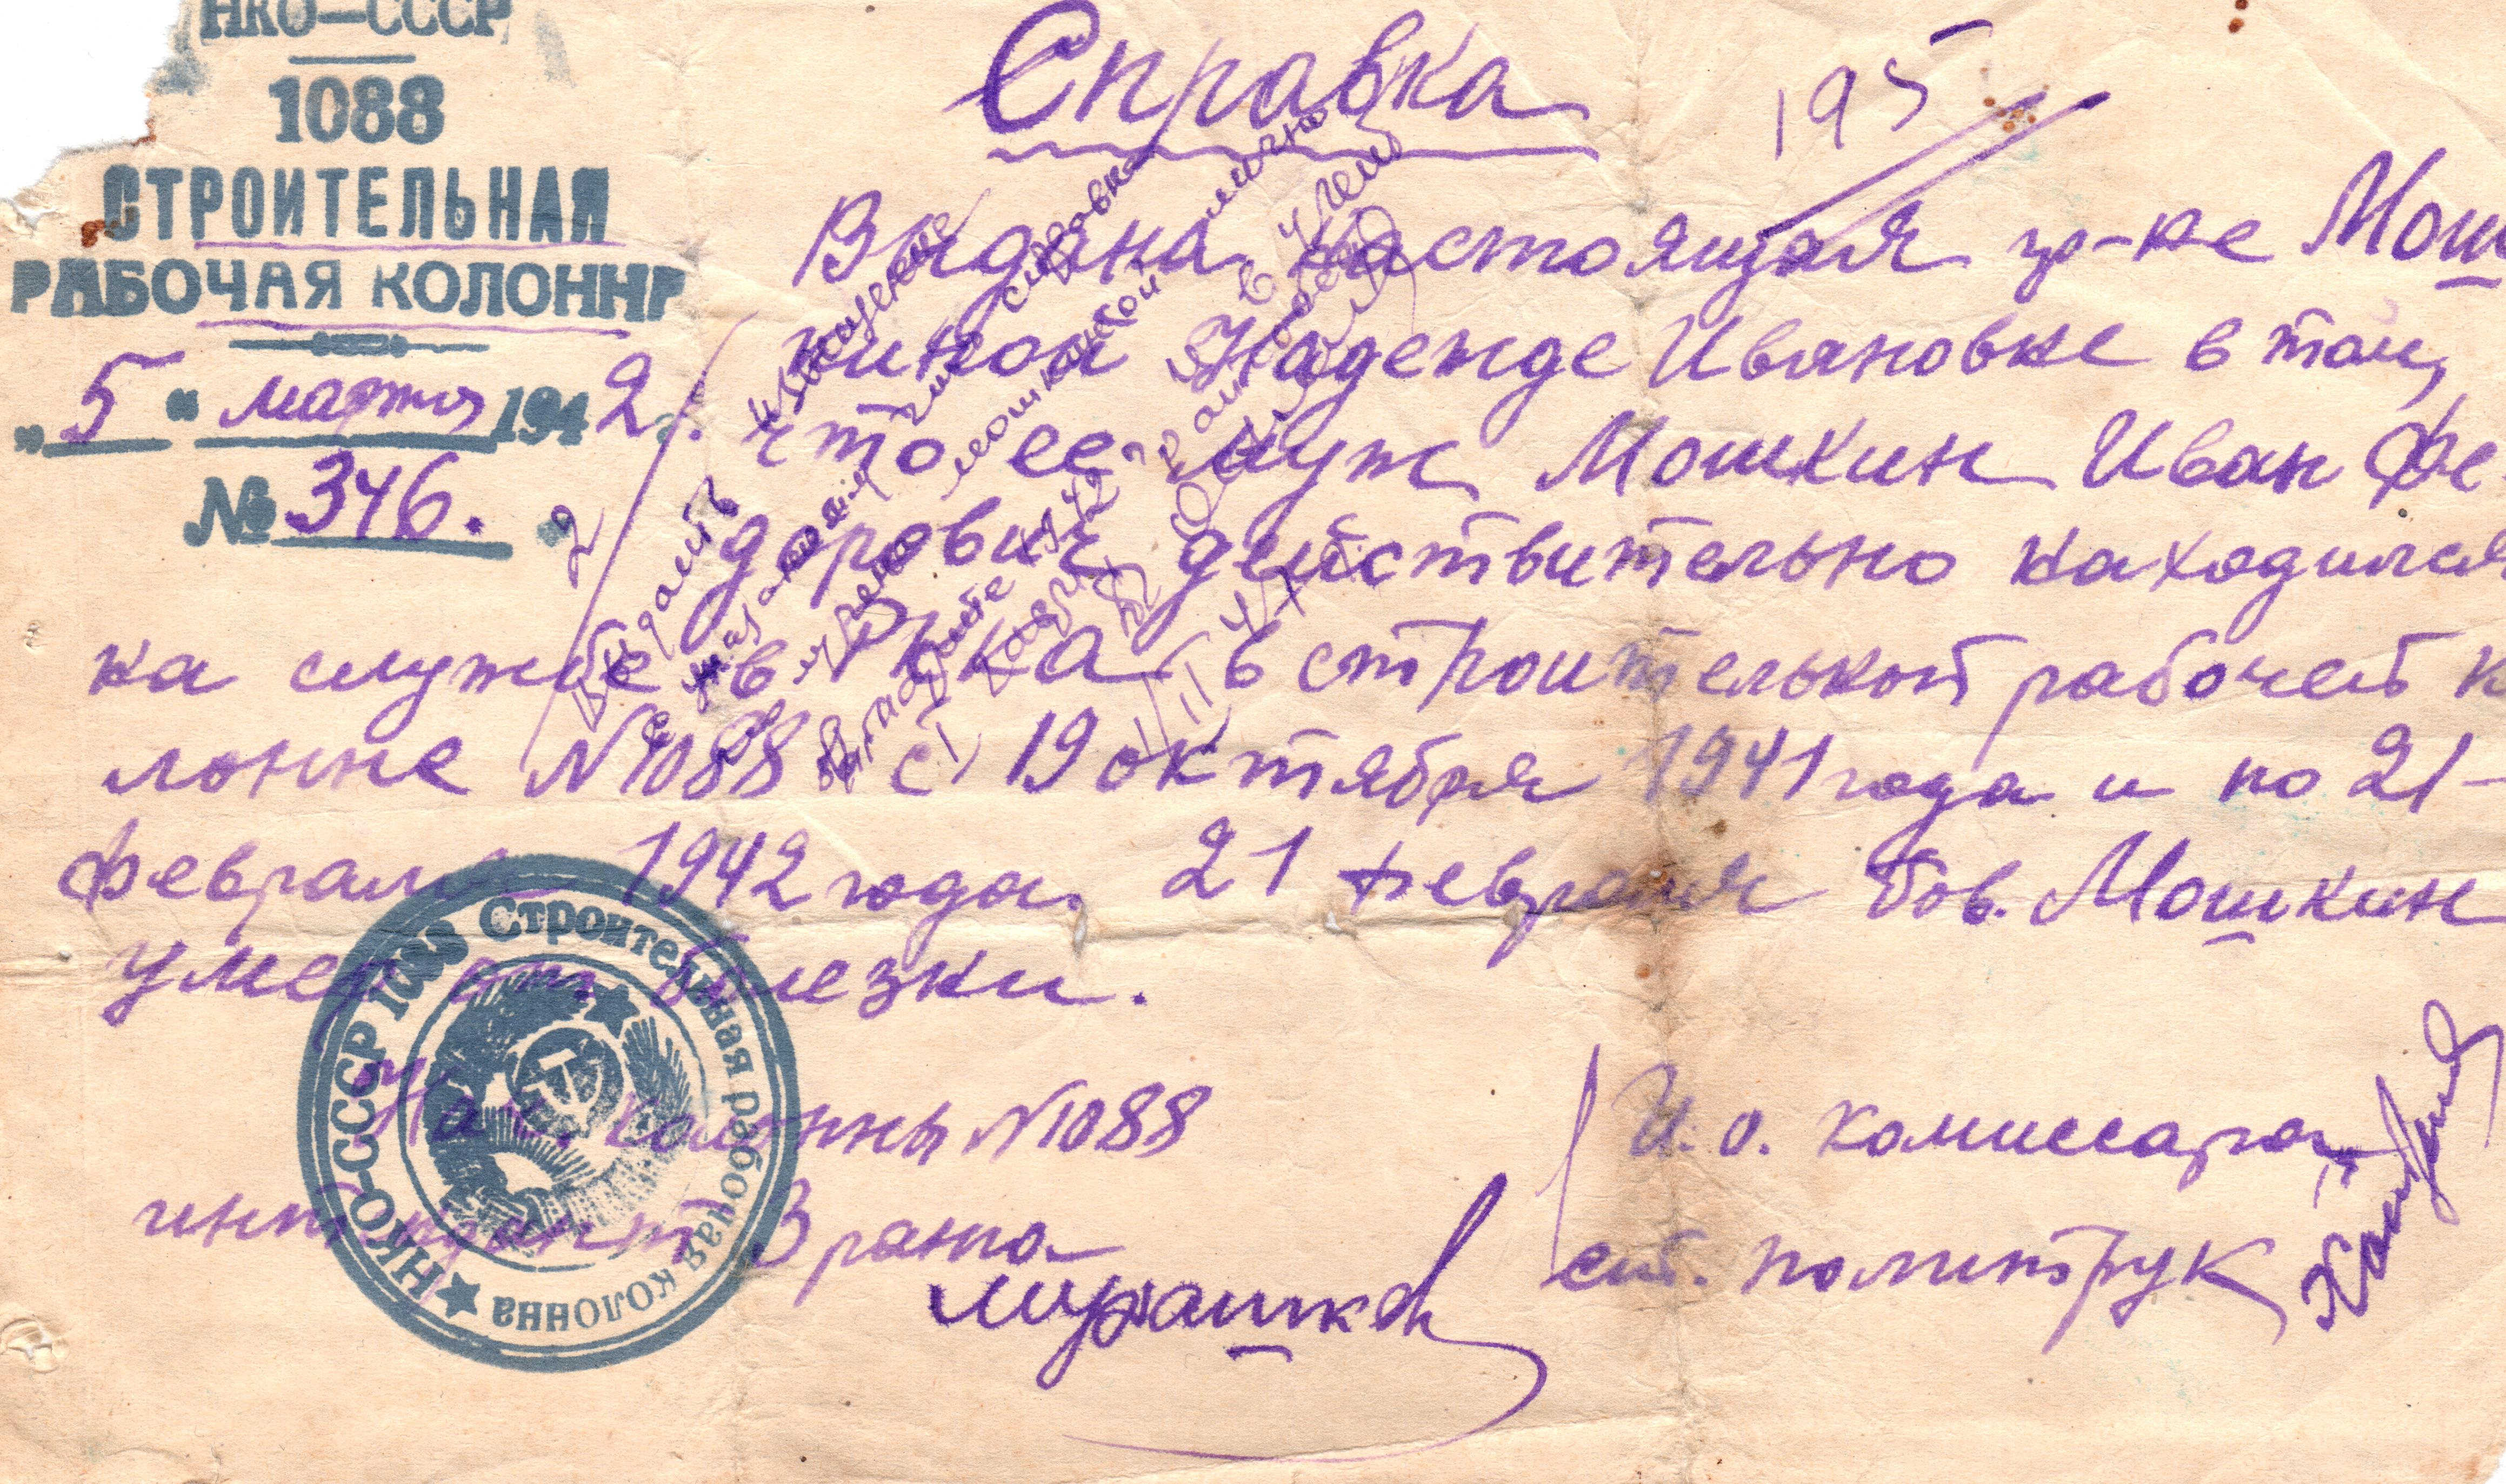 НКО—СССР
1088
СТРОИТЕЛЬНАЯ
РАБОЧАЯ КОЛОННА
„5“ марта 1942 г.
№ 346.
Справка
195
Выдана настоящая гр-ке Мош
киной Надежде Ивановне в том,
что ее муж Мошкин Иван Фе-
дорович действительно находился
на службе в РККА в строительной рабочей к
лонне №1088 с 19 октября 1941 года и по 21-
февраля 1942 года. 21 февраля Тов. Мошкин
умер от болезни.
Нач. колонны №1088
интендант 3 ранга
Мурашков
И.о. комиссара
ст. политрук
НКО-СССР 1088 Строительная рабочая колонна
Выдать извещение
справка
Мошкиной лично